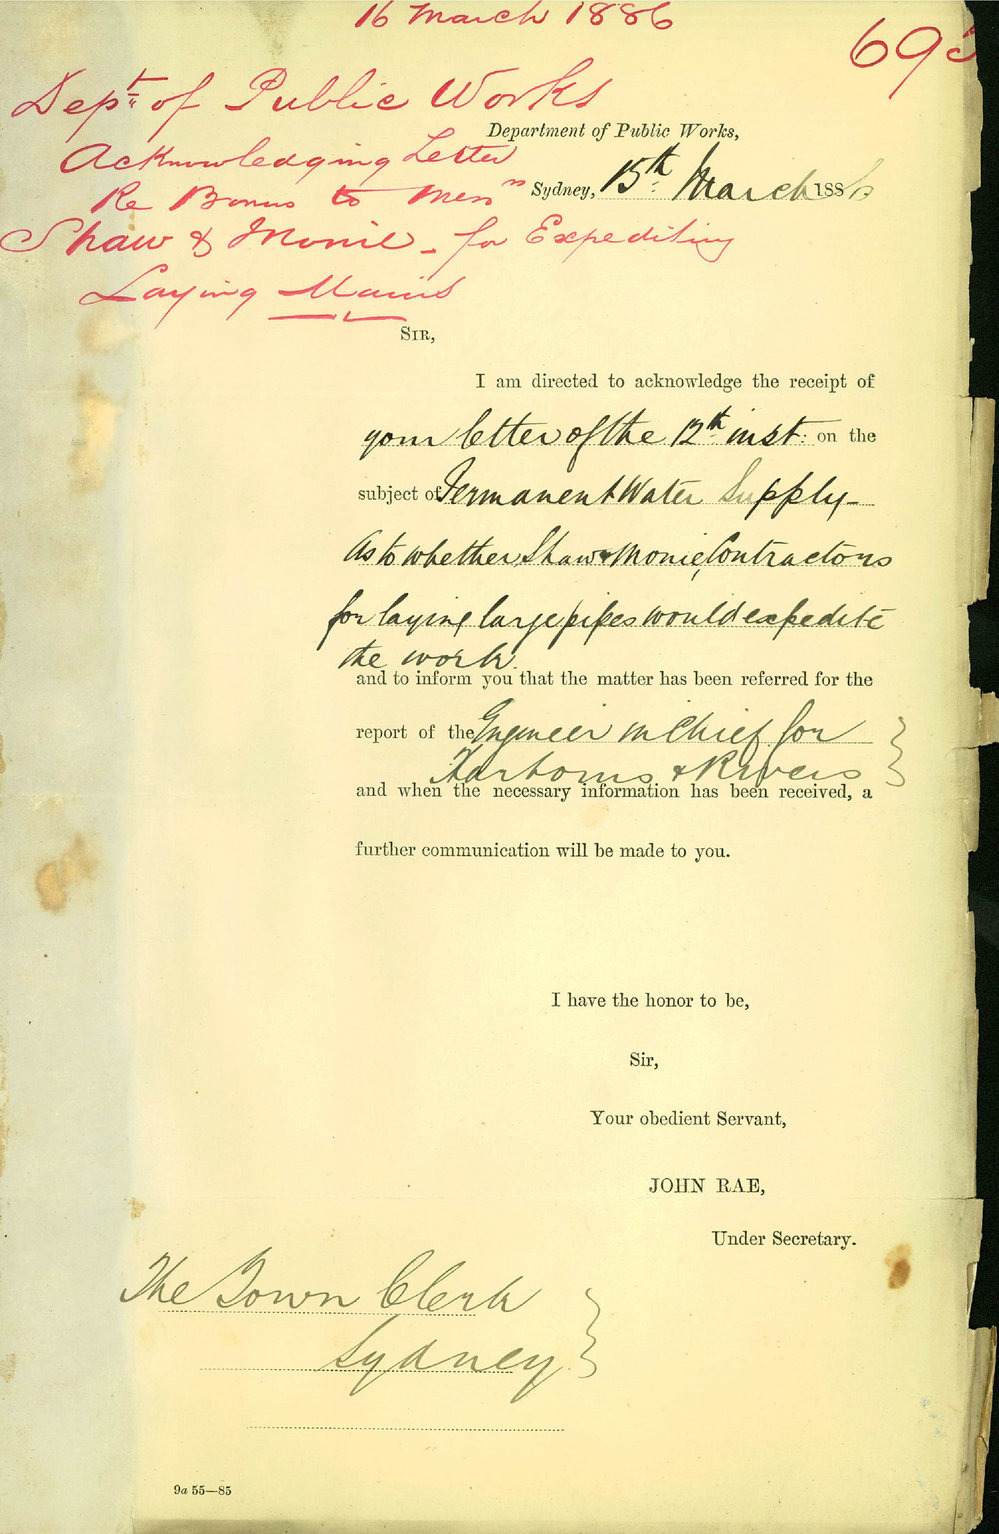 16 March 1886
695
Dept. of Public Works
Department of Public Works,
Acknowledging Letter
Sydney, 15th March 1886
Re Bonus to Messrs
Shaw & Monie - for Expediting
Laying Mains
SIR,
I am directed to acknowledge the receipt of
your letter of the 12th inst: on the
subject of Permanent Water Supply -
As to whether Shaw & Monie, Contractors
for laying large pipes would expedite
the work.
and to inform you that the matter has been referred for the
report of the Engineer in Chief for
Harbours & Rivers
and when the necessary information has been received, a
further communication will be made to you.
I have the honor to be,
Sir,
Your obedient Servant,
JOHN RAE,
Under Secretary.
The Town Clerk
Sydney
9a 55—85